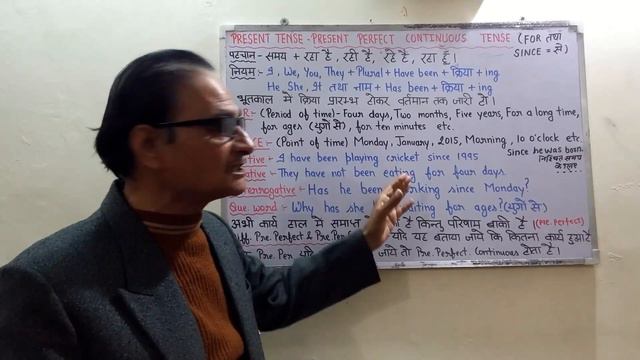 PRESENT TENSE - PRESENT PERFECT CONTINUOUS TENSE (FOR तथा SINCE = से)
पहचान - समय + रहा है, रही है, रहे है, रहा हूँ।
नियम - I, We, You, They + Plural + Have been + क्रिया + ing
He She, It तथा नाम + Has been + क्रिया + ing
भूतकाल मे क्रिया प्रारम्भ होकर वर्तमान तक जारी हो।
(Period of time) - Four days, Two months, Five years, For a long time,
for ages (युगो से), for ten minutes etc.
(Point of time) Monday, January, 2015, Morning, 10 o'clock etc.
Since he was born.
निश्चित समय
I have been playing cricket since 1995
They have not been eating for four days
Has he been since Monday?
Que. word - Why has she for ages? (युगो से)
अभी कार्य हाल मे समाप्त है किन्तु परिणाम बाकी है। (Pre. Perfect)
Pre. Perfect & Pre. यदि यह बताया जाये कि कितना कार्य हुआ है
Pre. Per जाये तो Pre. Perfect. Continuous होता है।